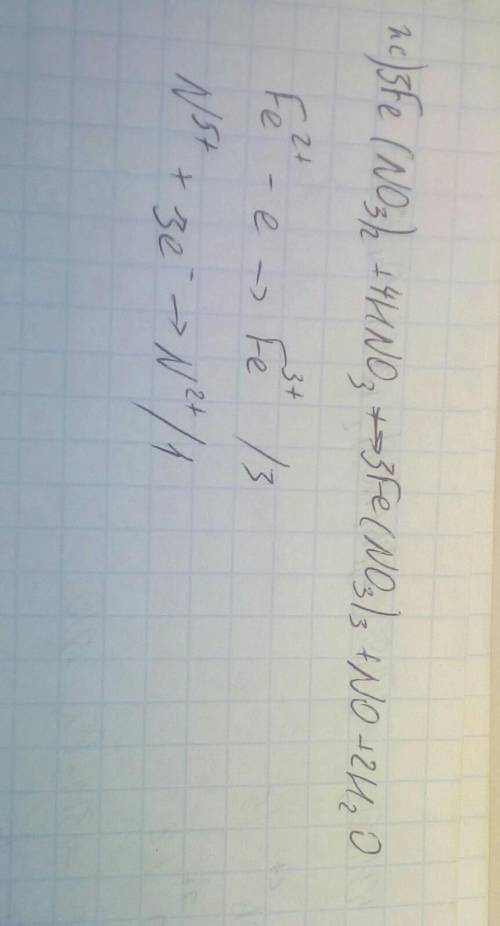 ж) 3Fe(NO₃)₂ + 4HNO₃ → 3Fe(NO₃)₃ + NO + 2H₂O
Fe²⁺ - e → Fe³⁺ /3
N⁵⁺ + 3e⁻ → N²⁺ /1